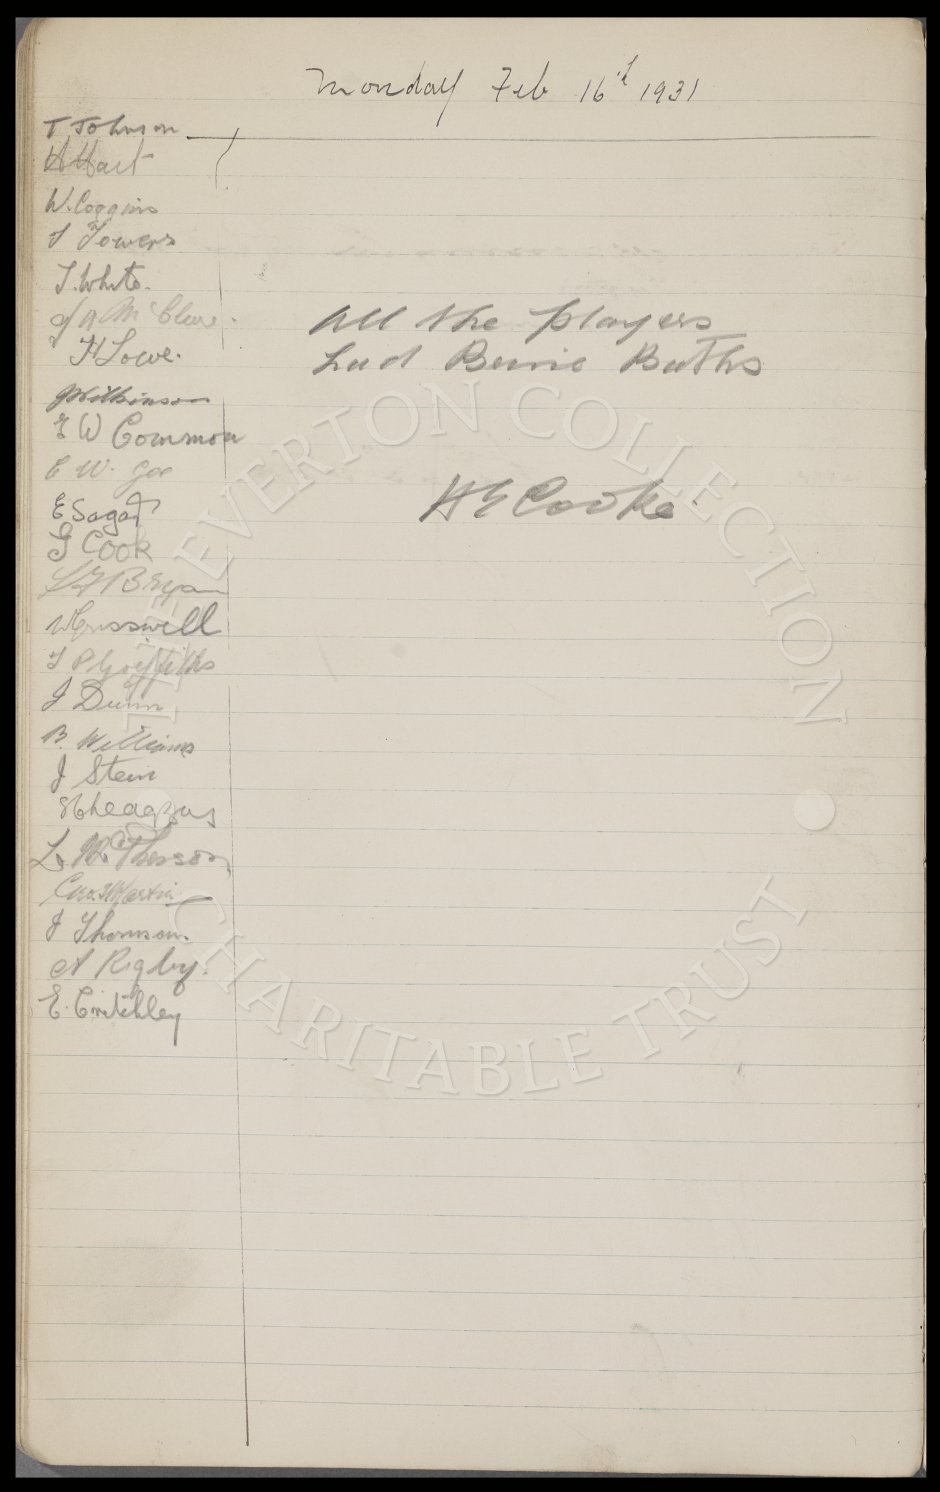 Monday Feb 16th 1931
T Johnson
H Hart
W. Coggins
J Towers
T. White.
J H McClure.
H Lowe.
J Wilkinson
E W Common
C W. Gee
E Sagar
G Cook
W Cresswell
T P Griffiths
J Dunn
B. Williams
J Stein
L. McPherson
Geo. Martin
J Thomson.
A Rigby.
E. Critchley
All the players
had Brine Baths
H E Cooke
THE EVERTON COLLECTION • CHARITABLE TRUST •